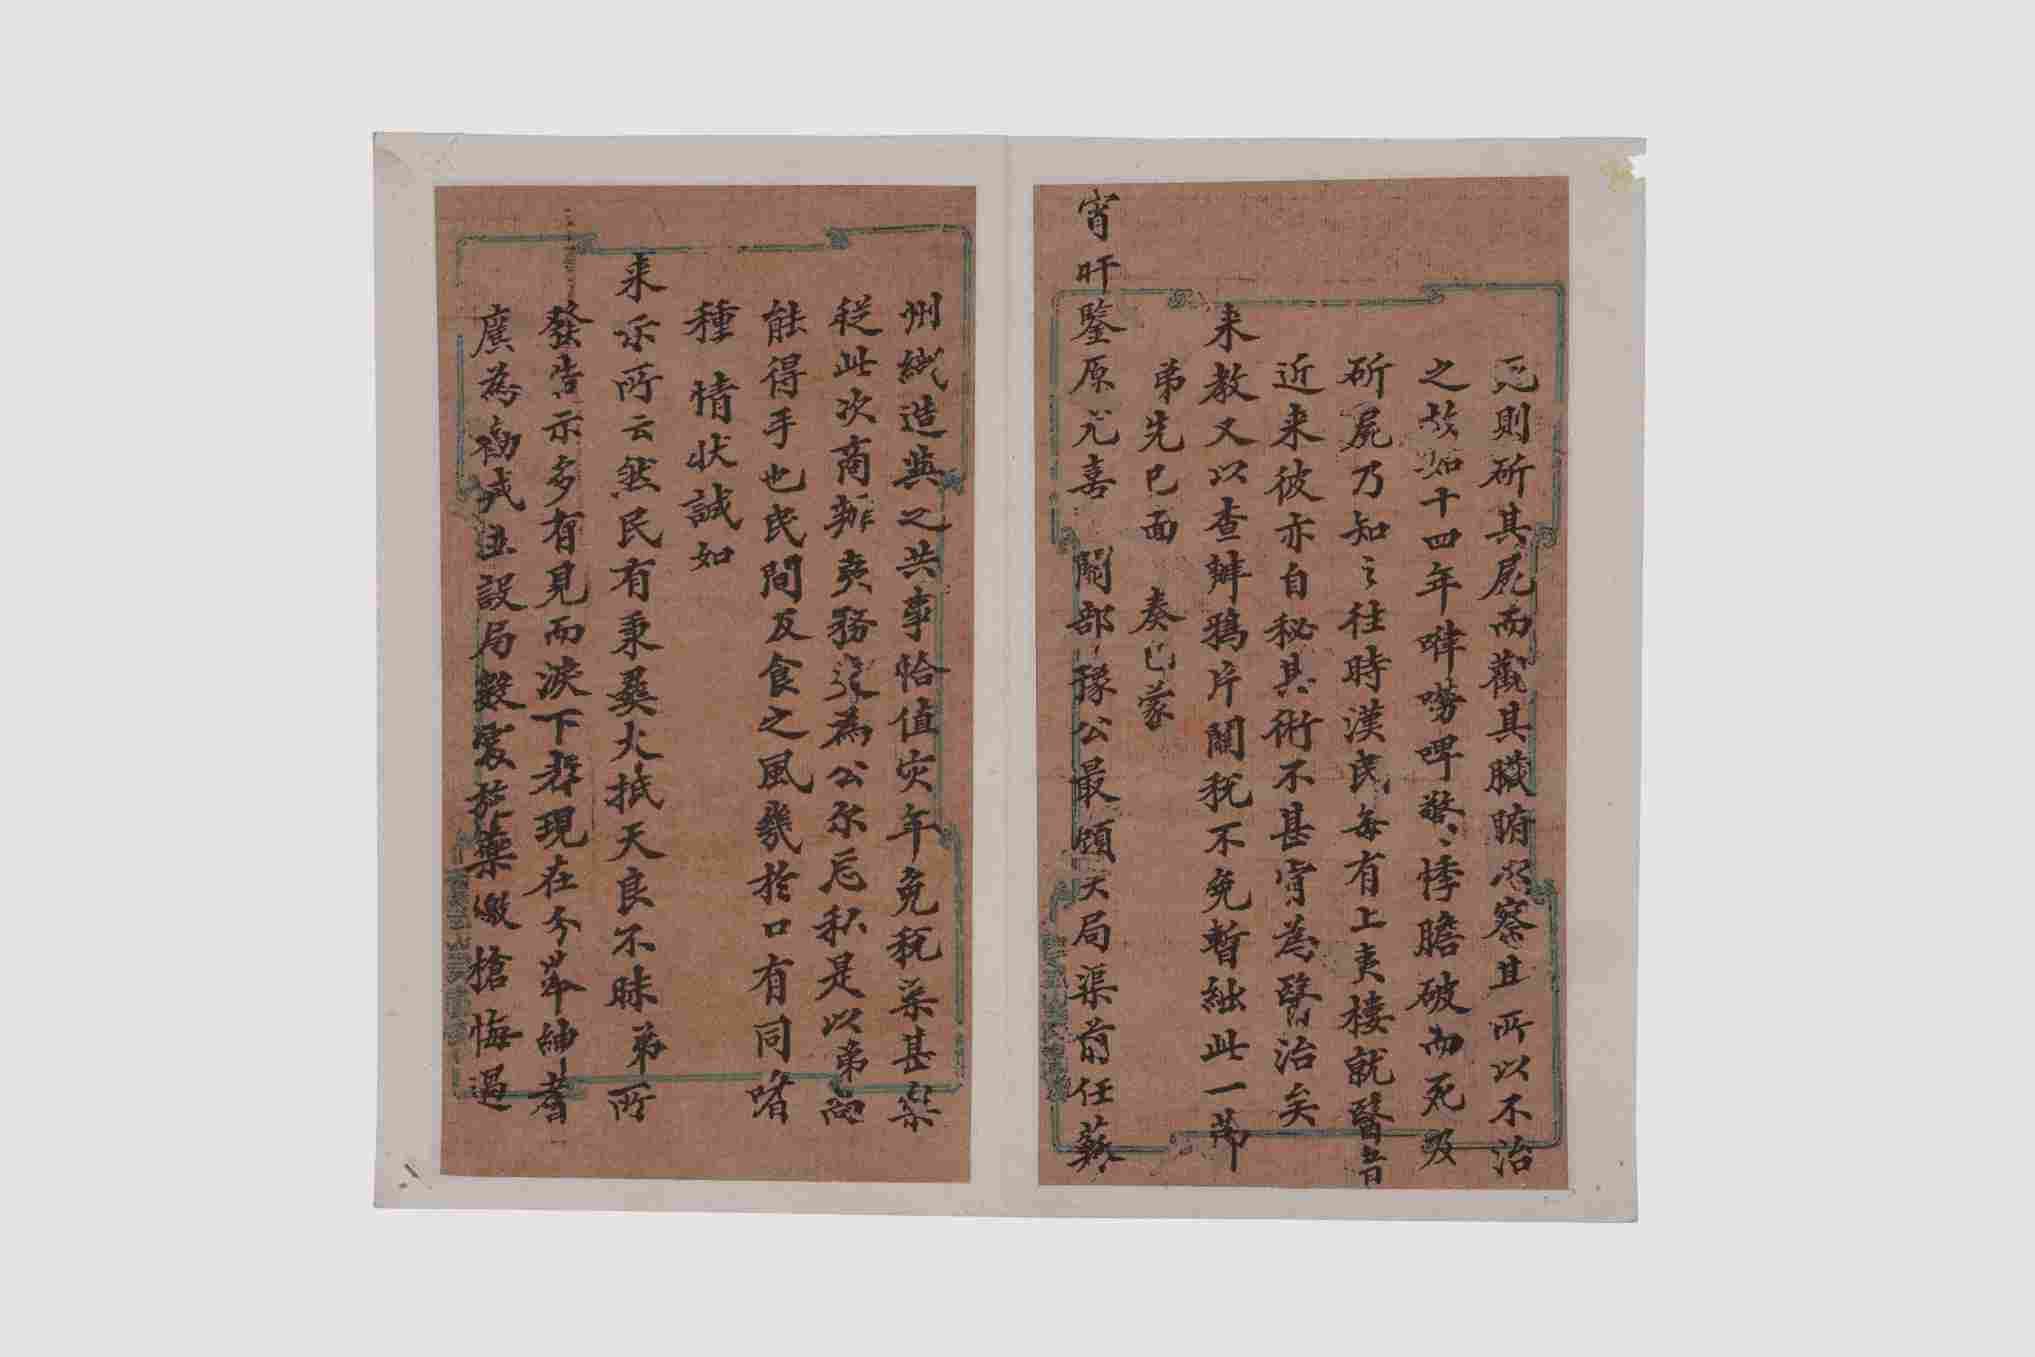 死則斫其屍而觀其臟腑以察其所以不治
之故如十四年嗶嘮啤驚悸膽破而死及
斫屍乃知之往時漢民每有上夷樓就醫者
近來彼亦自秘其術不甚肯為醫治矣
來教又以查辦鴉片關稅不免暫絀此一節
弟先已面 奏已蒙
宵旰鑒原尤喜 關部豫公最顧大局渠前任蘇
州織造與之共事恰值灾年免稅菜甚
從此次商辦夷務遂為公尔忘私是以弟尚
能得手也民間反食之風幾於口有同嗜
種情狀誠如
来示所云然民有秉彝大抵天良不昧弟所
發告示多有見而淚下者現在令举紳耆
廣為勸戒並設局數處施藥繳槍悔過